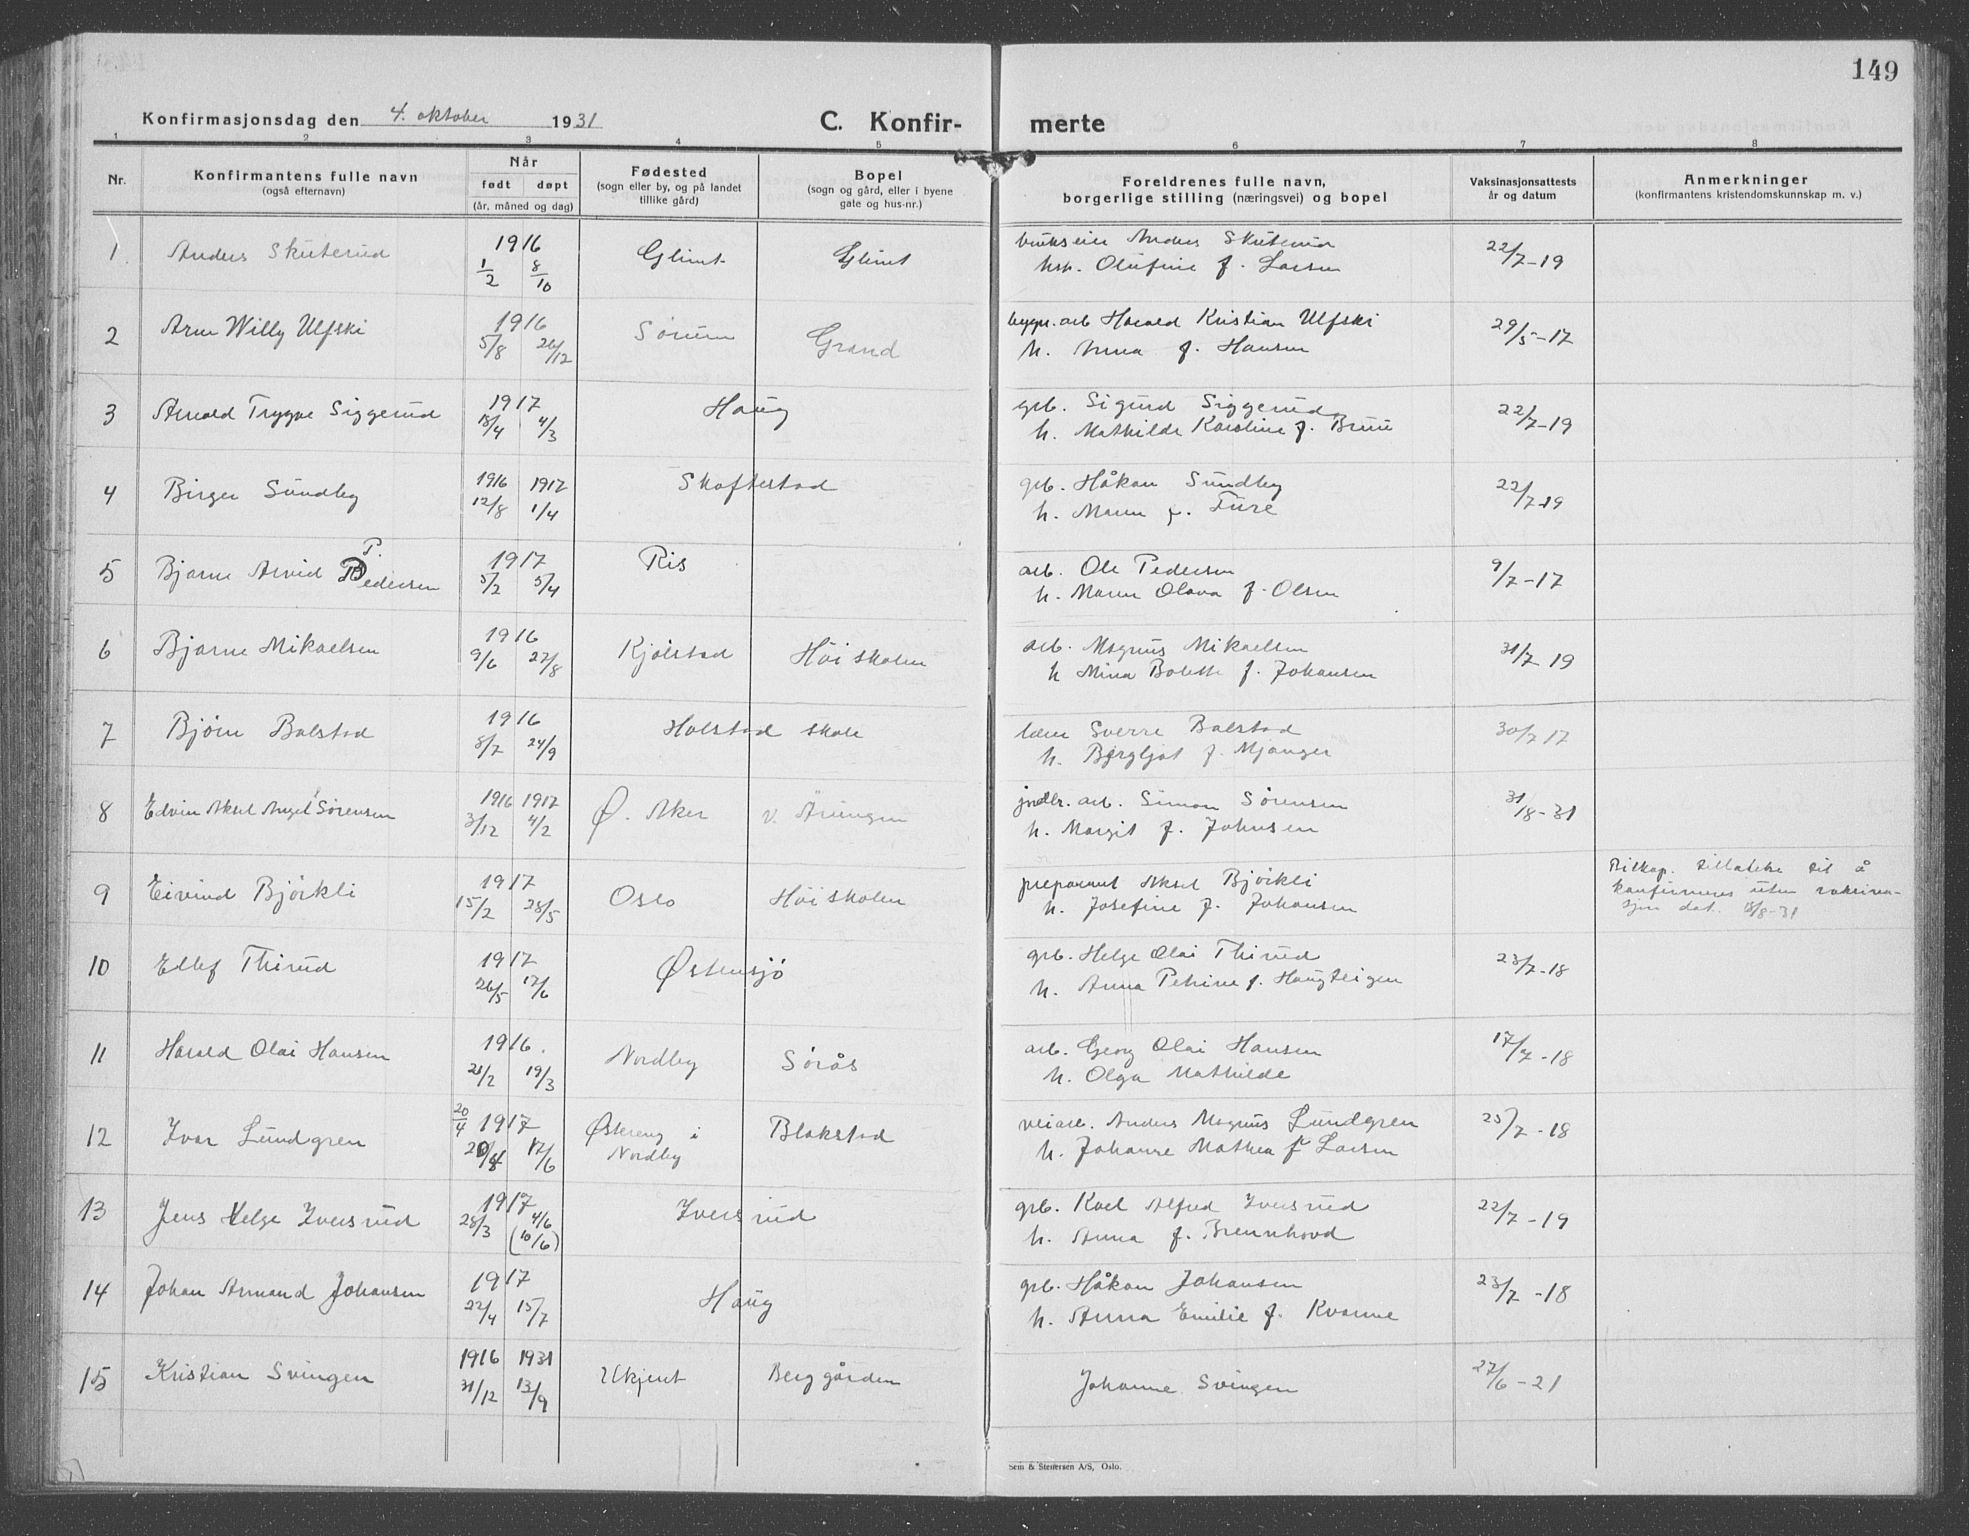 149
Konfirmasjonsdag den 4. oktober 1931 C. Konfir- merte
1 2 3 4 5 6 7 8
Nr.
Konfirmantens fulle navn
(også efternavn)
Når
født døpt
(år, måned og dag)
Fødested
(sogn eller by, og på landet
tillike gård)
Bopel
(sogn og gård, eller i byene
gate og hus-nr.)
Foreldrenes fulle navn,
borgerlige stilling (næringsvei) og bopel
Vaksinasjonsattests
år og datum
Anmerkninger
(konfirmantens kristendomskunnskap m. v.)
1 Anders Skuterud 1916 1/2 8/10 Glimt Glimt
brukseier Anders Skuterud
hsh. Olufine f. Larsen 22/7-19
2 Arne Willy Ulfski 1916 5/8 26/12 Sørum Grand
bygn. arb Harald Kristian Ulfski
h. Anna f. Hansen 29/5-17
3 Arvald Trygve Siggerud 1917 18/4 4/3 Haug
grb. Sigurd Siggerud
h. Mathilde Karoline f. Bruu 22/7-19
4 Birger Sundby 1916 1917 12/8 1/4 Skoftestad
grb. Håkon Sundby
h. Maren f. Ture 22/7-19
P.
5 Bjarne Arvid Pedersen 1917 5/2 5/4 Ris
arb. Ole Pedersen
h. Maren Olava f. Olsen 9/7-17
6 Bjarne Mikaelsen 1916 9/6 27/8 Kjølstad Høiskolen
arb. Magnus Mikaelsen
h Mina Bolette f. Johansen 31/7-19
7 Bjørn Balstad 1916 8/7 24/9 Holstad skole
lærer Sverre Balstad
h. Bergljot f. Mjanger 30/7 17
8 Edvin Aksel Angel Sørensen 1916 1917 3/12 4/2 Ø. Aker v. Årungen
jrdbr. arb. Simon Sørensen
h. Margit f. Johnsen 31/8-31
9 Eivind Bjørkli 1917 15/2 28/5 Oslo Høiskolen
preparant Aksel Bjørkli
h. Josefine f. Johansen
Biskop. tillatelse til å
konfirmeres uten vaksina-
sjon dat. 18/8-31
10 Edlef Thirud 1917 26/5 17/6 Østensjø
grb. Helge Olai Thirud
h. Anna Petrine f. Haugteigen 23/7-18
11 Harald Olai Hansen 1916. 21/2 19/3 Nordby Sørås
arb. Georg Olai Hansen
h. Olga Mathilde 17/7-18
12 Ivar Lundgren 20/4 1917 20/4 17/6 Østreng i Nordby Blakstad
veiarb. Anders Magnus Lundgren
h. Johanne Mathea f Larsen 25/7-18
13 Jens Helge Iversrud 1917 28/3 4/6 (10/6) Iversrud
grb. Karl Alfred Iversrud
h. Anna f. Brennhovd 22/7-19
14 Johan Armand Johansen 1917 22/4 15/7 Haug
grb. Håkon Johansen
h. Anna Emilie f. Kvarme 23/7-18
15 Kristian Svingen 1916 1931 31/12 13/9 Ukjent Berggården
Johanne Svingen 27/6-21
Sem & Stenersen A/S, Oslo.